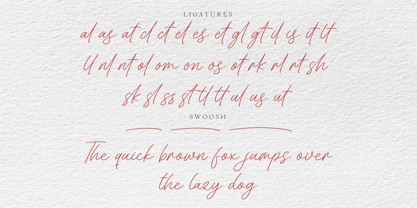 LIGATURES
al as at cl ct el es et gl gt il is it lt
ll nl nt ol om on os ot rk rl rt sh
sk sl ss st tl tt ul us ut
SWOOSH
The quick brown fox jumps over
the lazy dog